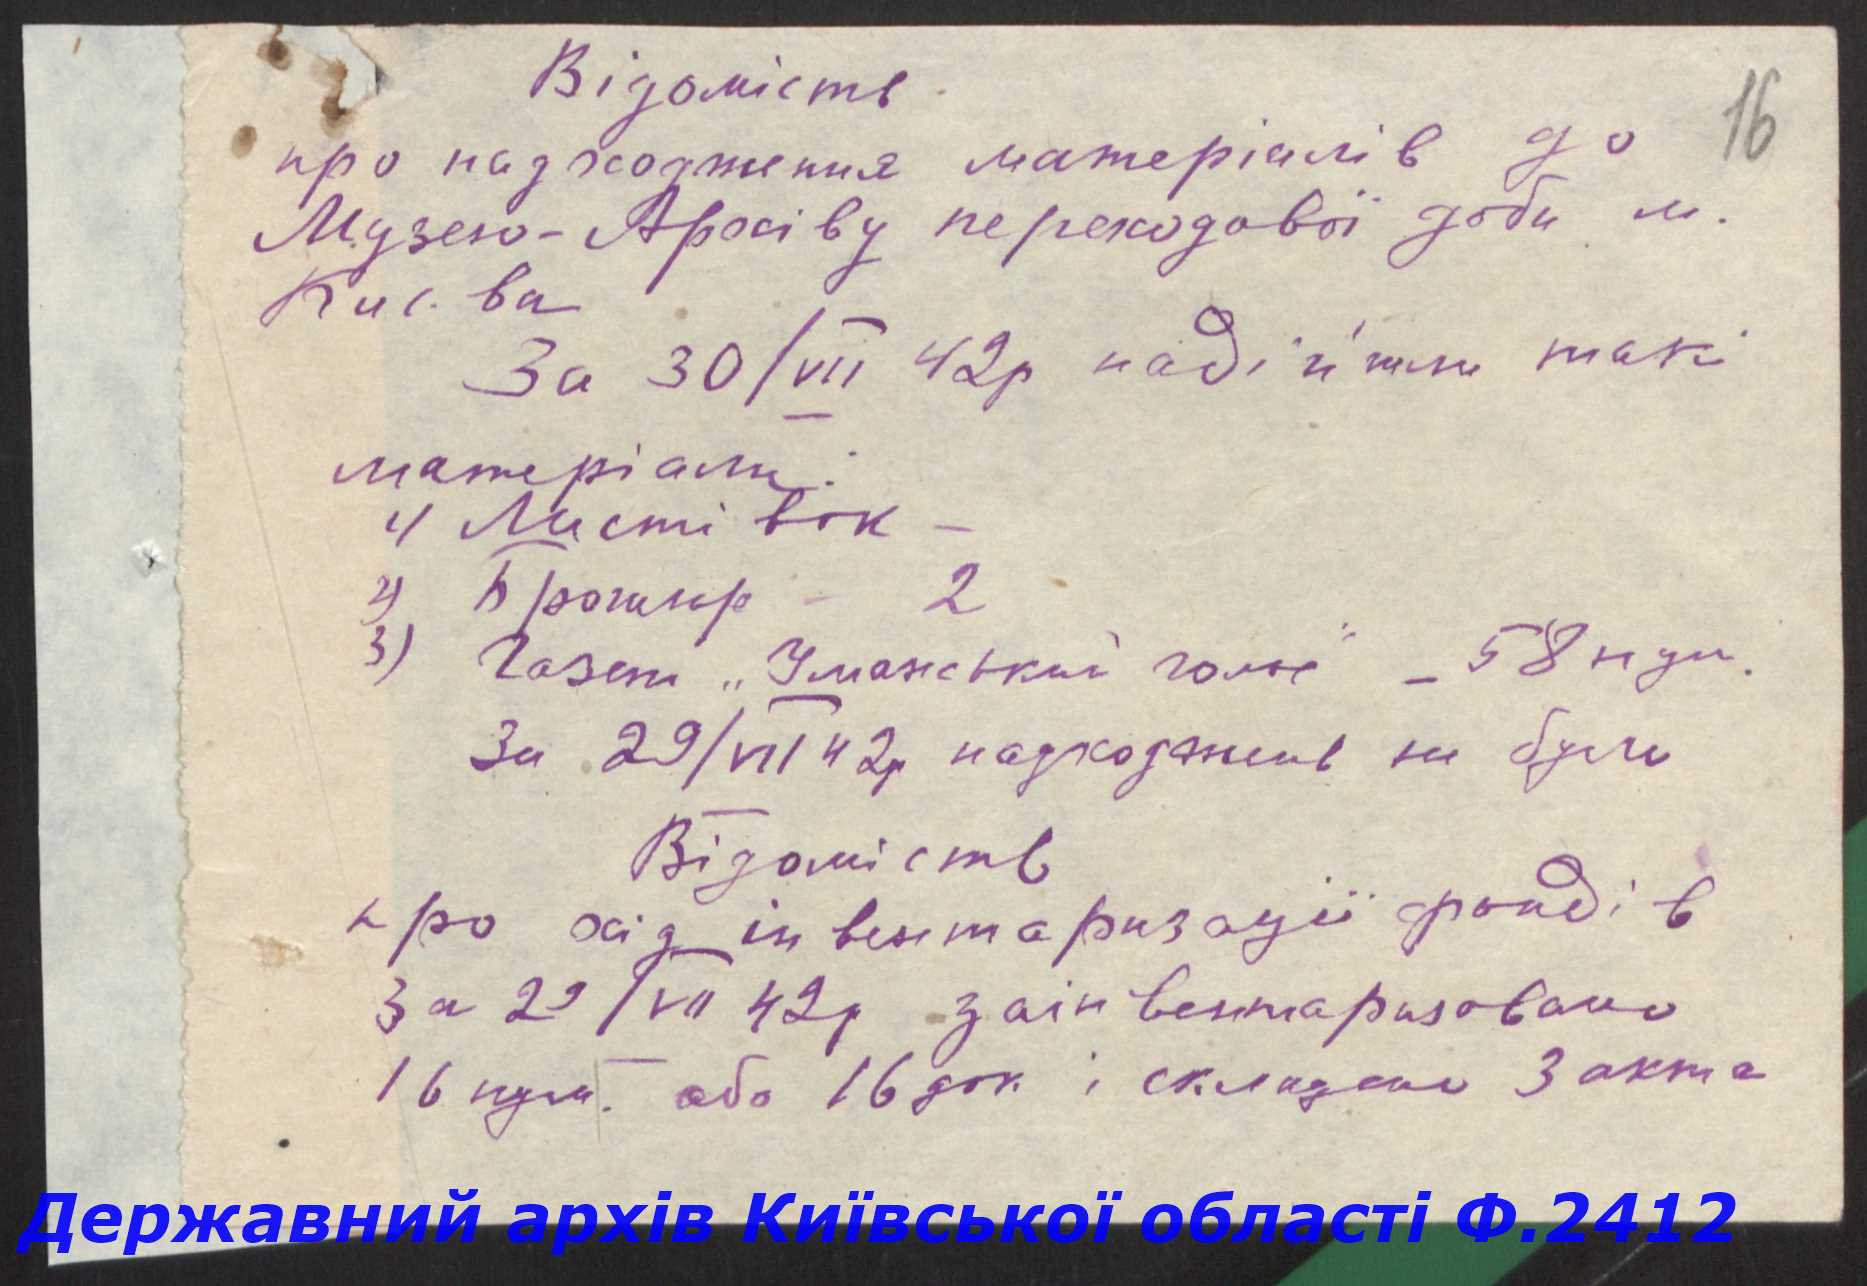 Відомість
16
про надходження матеріалів до
Музею-Архіву переходової доби м.
Києва
За 30/VII 42р надійшли такі
матеріали:
1) Листівок -
2) Брошюр - 2
3) Газет „Уманський голос" - 58 нум.
За 29/VII 42р надходжень не було
Відомість
про хід інвентаризації фондів
За 29/VII 42р заінвентаризовано
16 нум. або 16 док і складено 3 акта
Державний архів Київської області Ф.2412